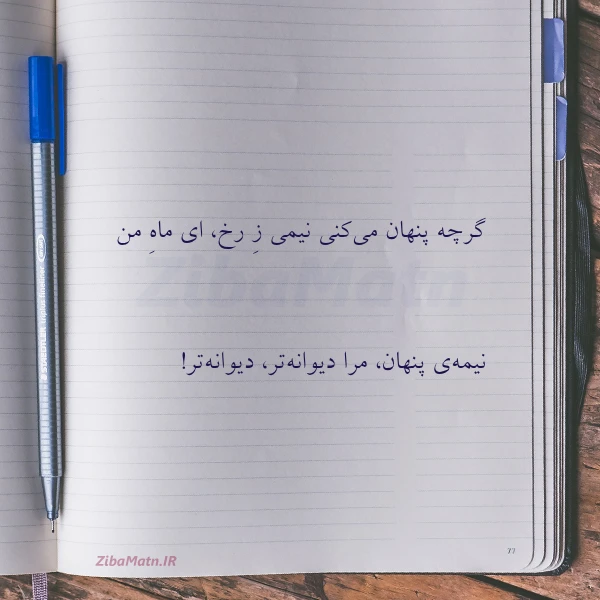 گرچه پنهان می‌کنی نیمی زِ رخ، ای ماهِ من
ZibaMatn
نیمه‌ی پنهان، مرا دیوانه‌تر، دیوانه‌تر!
ZibaMatn.IR